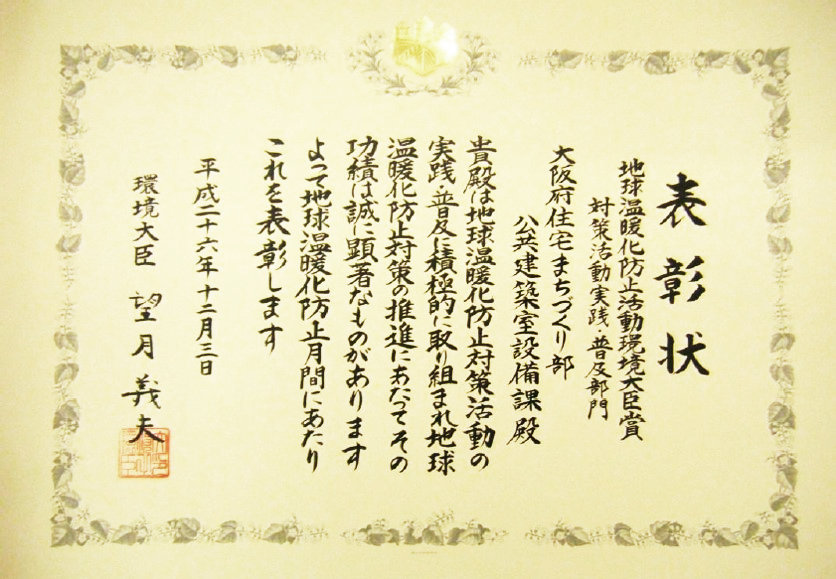 表彰状
地球温暖化防止活動環境大臣賞
対策活動実践・普及部門
大阪府住宅まちづくり部
公共建築室設備課殿
貴殿は地球温暖化防止対策活動の
実践・普及に積極的に取り組まれ地球
温暖化防止対策の推進にあたってその
功績は誠に顕著なものがあります
よって地球温暖化防止月間にあたり
これを表彰します
平成二十六年十二月三日
環境大臣 望月義夫